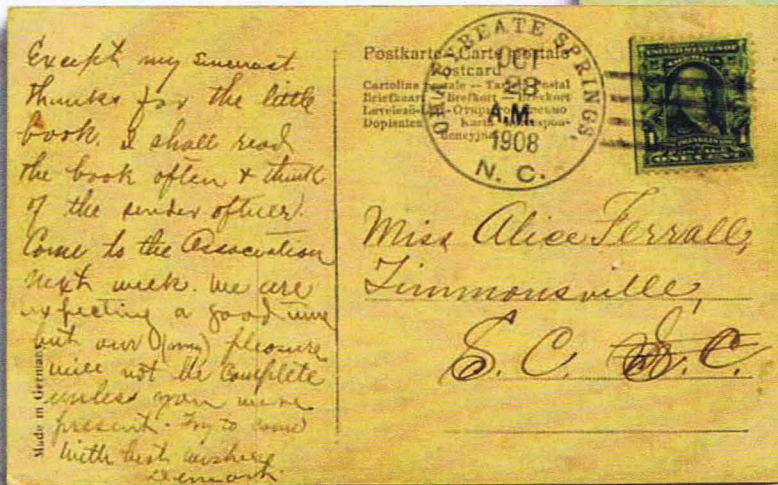 Except my sincerest
thanks for the little
book. I shall read
the book often & think
of the sender oftner.
Come to the Association
next week. We are
expecting a good time
but our (my) pleasure
will not be complete
unless you were
present. Try to come
With best wishes
Made in Germany
Postkarte — Carte postale
Postcard
Cartolina postale — Postal
Briefkaart — Brefkort
Levelező-Lap
Dopisnice Karta
OCT
28
A.M.
1908
SPRINGS,
N. C.
UNITED STATES OF
AMERICA
FRANKLIN
1 ONE CENT 1
Miss Alice Ferrall,
Timmonsville,
S. C. S. C.